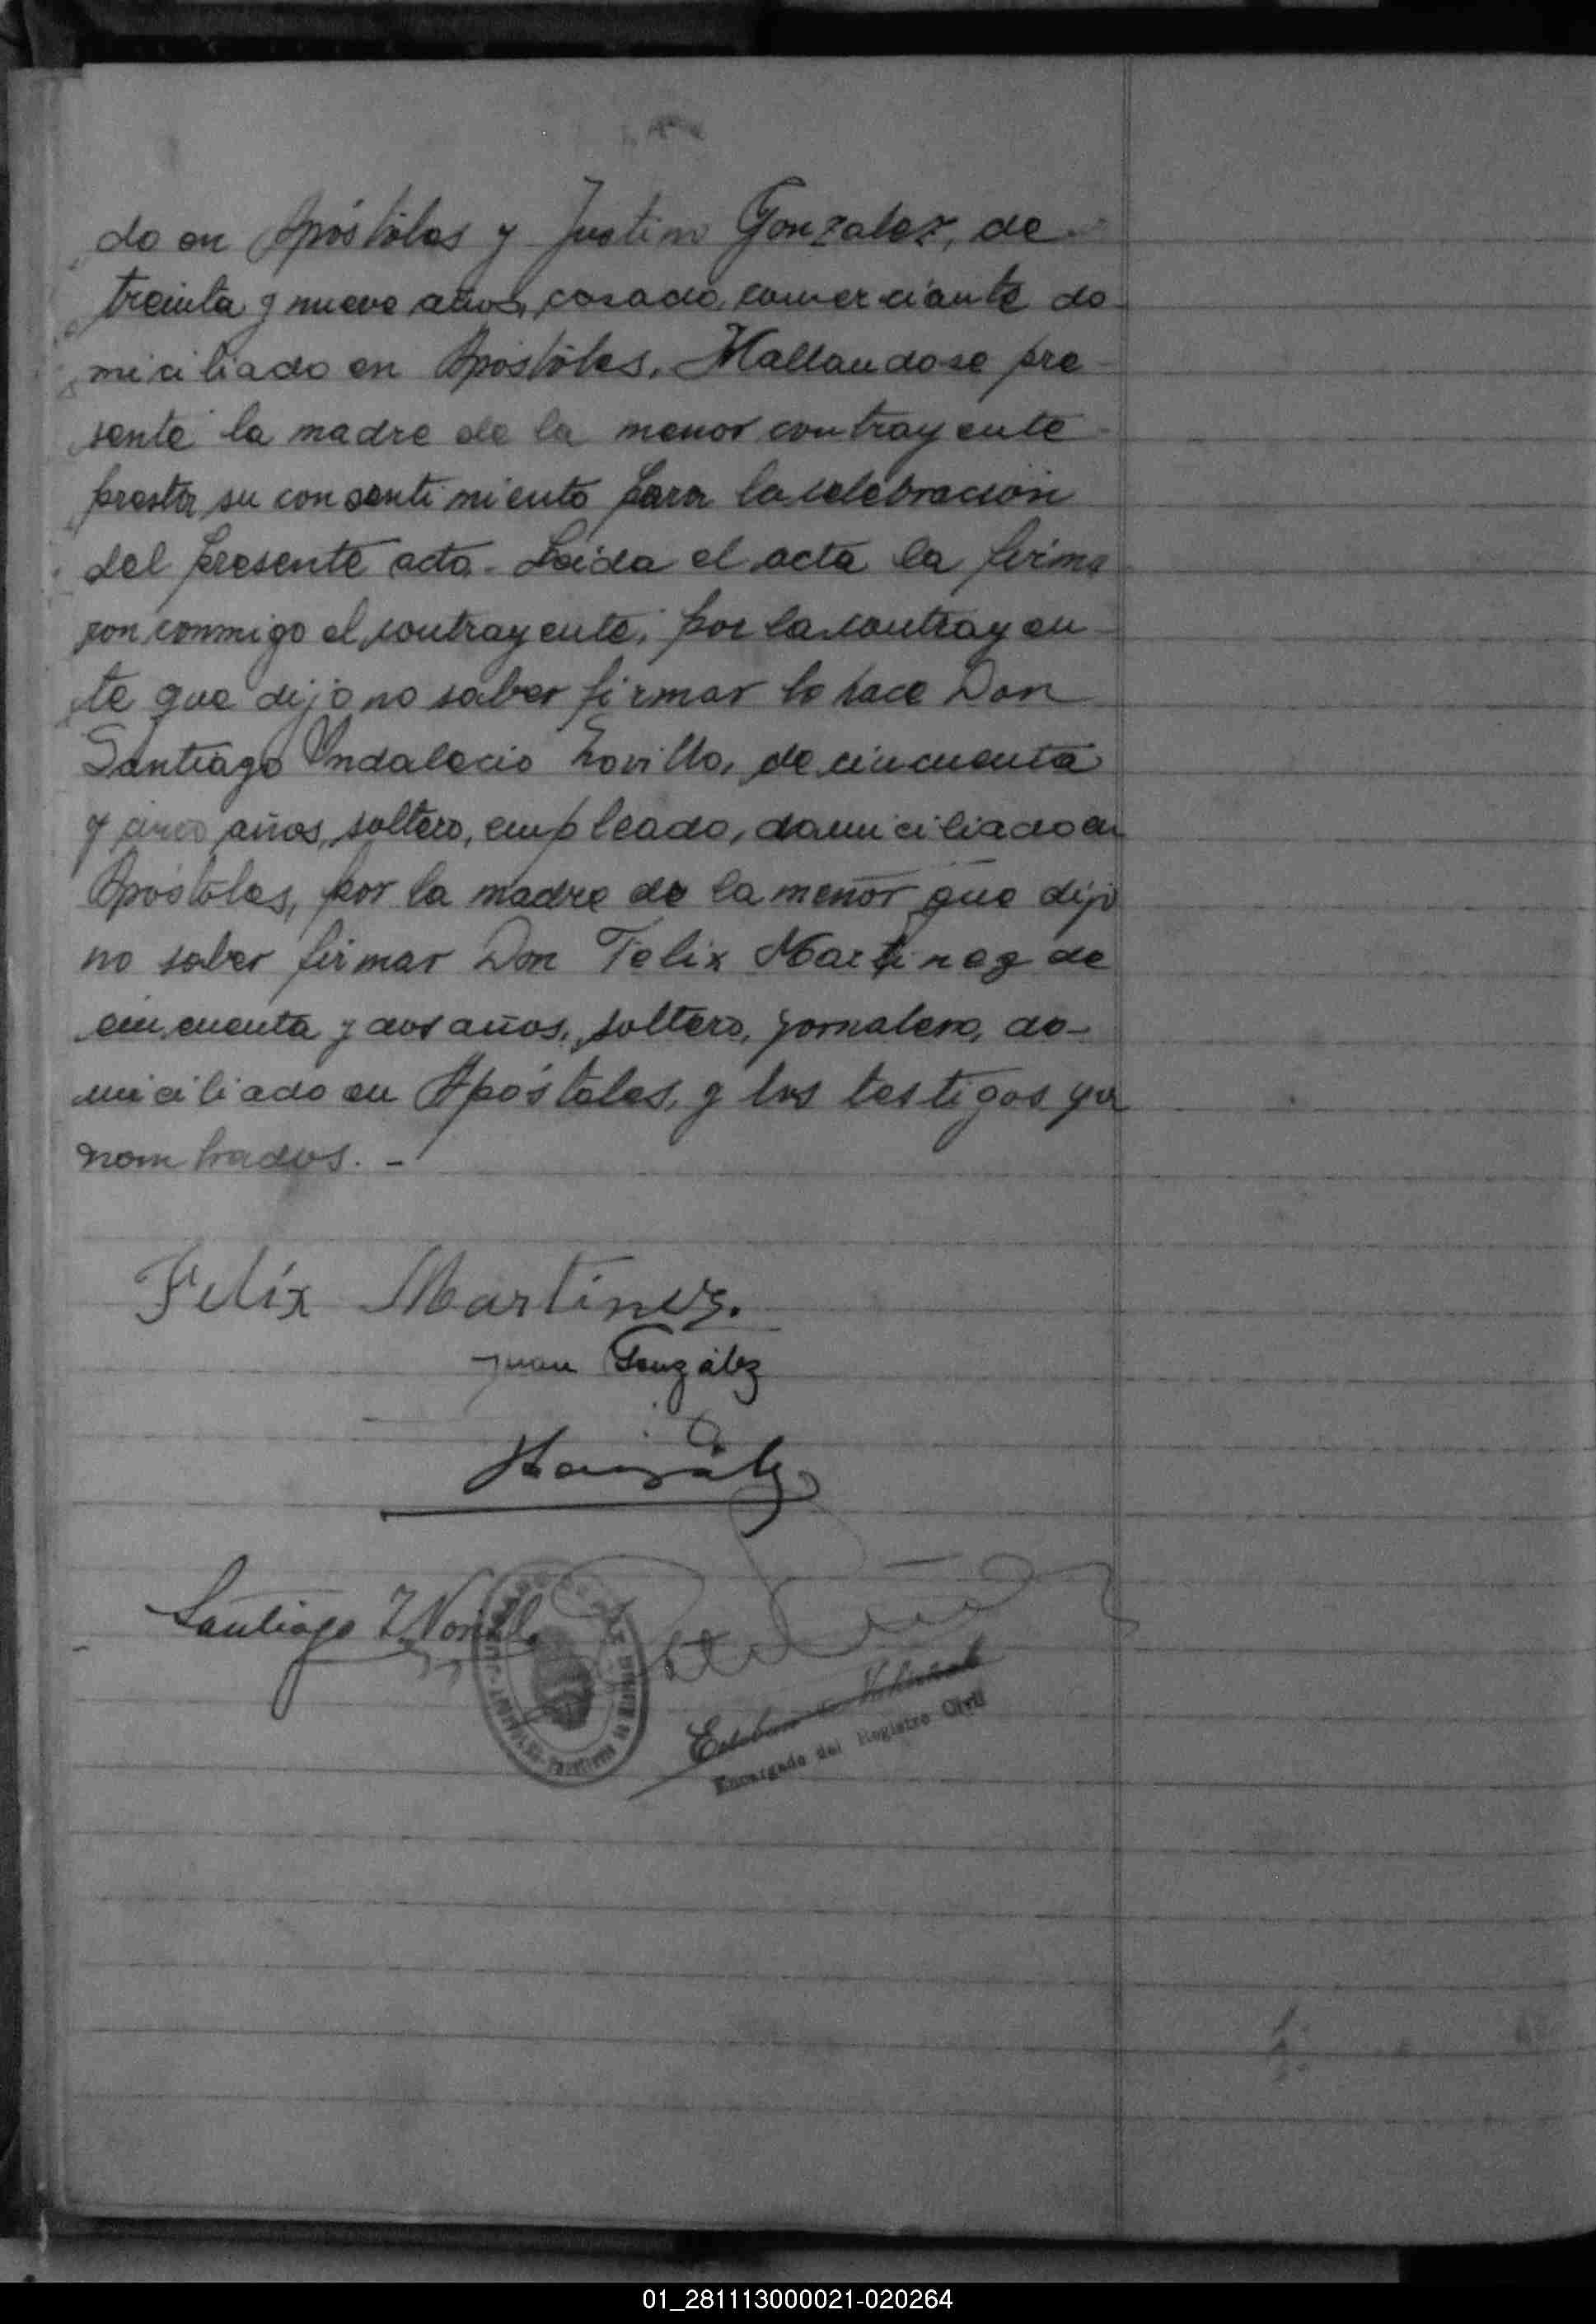 do en Apóstoles y Justino Gonzalez, de
treinta y nueve años, casado, comerciante do-
miciliado en Apóstoles. Hallandose pre-
sente la madre de la menor contrayente
presta su consentimiento para la celebración
del presente acto. Leida el acta la firma
ron conmigo el contrayente, por la contrayen-
te que dijo no saber firmar lo hace Don
Santiago Indalecio de cincuenta
y cinco años, soltero, empleado, domiciliado en
Apóstoles, por la madre de la menor que dijo
no saber firmar Don Felix Martinez de
cincuenta y dos años, soltero, jornalero, do-
miciliado en Apóstoles, y los testigos ya
nombrados. -
Felix Martinez.
Juan González
Santiago I.
Esteban
Encargado del Registro Civil
01_281113000021-020264